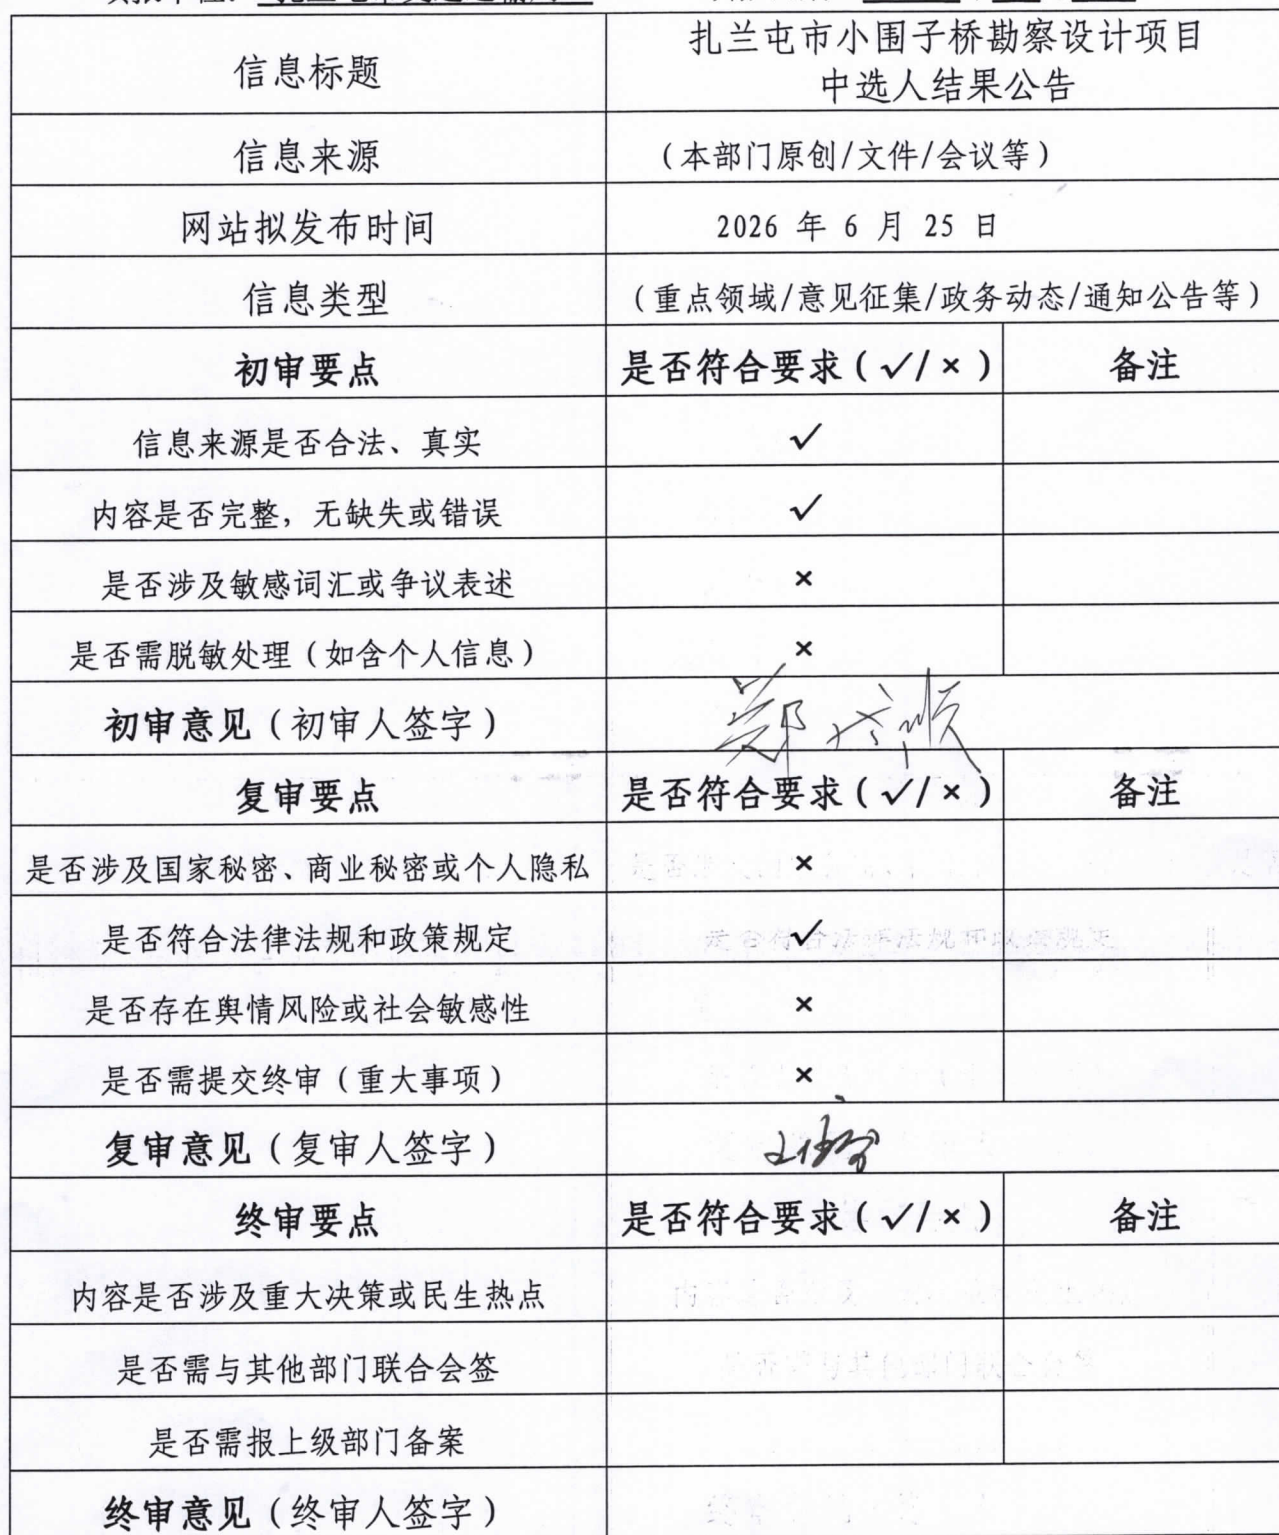 信息标题
扎兰屯市小围子桥勘察设计项目
中选人结果公告
信息来源
（本部门原创/文件/会议等）
网站拟发布时间
2026 年 6 月 25 日
信息类型
（重点领域/意见征集/政务动态/通知公告等）
初审要点 是否符合要求（✓/×） 备注
信息来源是否合法、真实 ✓
内容是否完整，无缺失或错误 ✓
是否涉及敏感词汇或争议表述 ×
是否需脱敏处理（如含个人信息） ×
初审意见（初审人签字）
复审要点 是否符合要求（✓/×） 备注
是否涉及国家秘密、商业秘密或个人隐私 ×
是否符合法律法规和政策规定 ✓
是否存在舆情风险或社会敏感性 ×
是否需提交终审（重大事项） ×
复审意见（复审人签字）
终审要点 是否符合要求（✓/×） 备注
内容是否涉及重大决策或民生热点
是否需与其他部门联合会签
是否需报上级部门备案
终审意见（终审人签字）